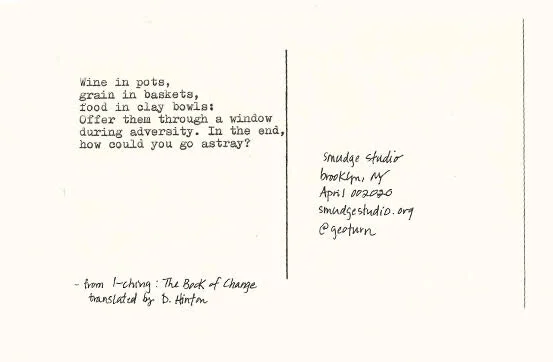 Wine in pots,
grain in baskets,
food in clay bowls:
Offer them through a window
during adversity. In the end,
how could you go astray?
- from I-ching: The Book of Change
translated by D. Hinton
smudge studio
brooklyn, NY
April 002020
smudgestudio.org
@geoturn